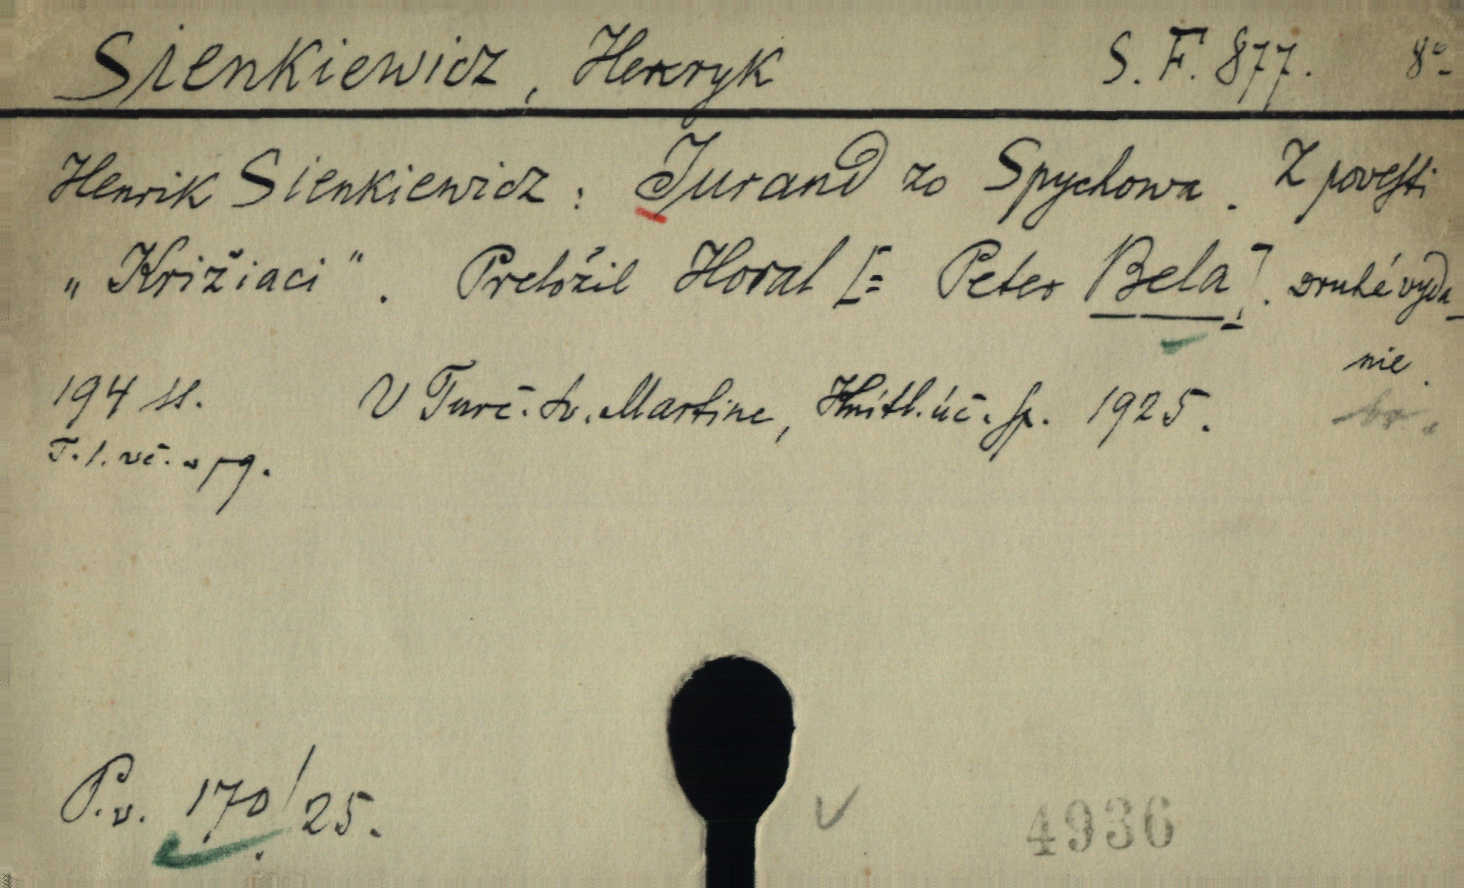 Sienkiewicz, Henryk S. F. 877. 8°-
Henrik Sienkiewicz: Jurand zo Spychowa. Z povesti
„Križiaci". Preložil Horal [= Peter Bela]. Druhé vyda-
nie.
194 ss. V Turč. Sv. Martine, Kníhtl. úč. sp. 1925.
br.
T. l. vč.
P.v. 170/25.
4936